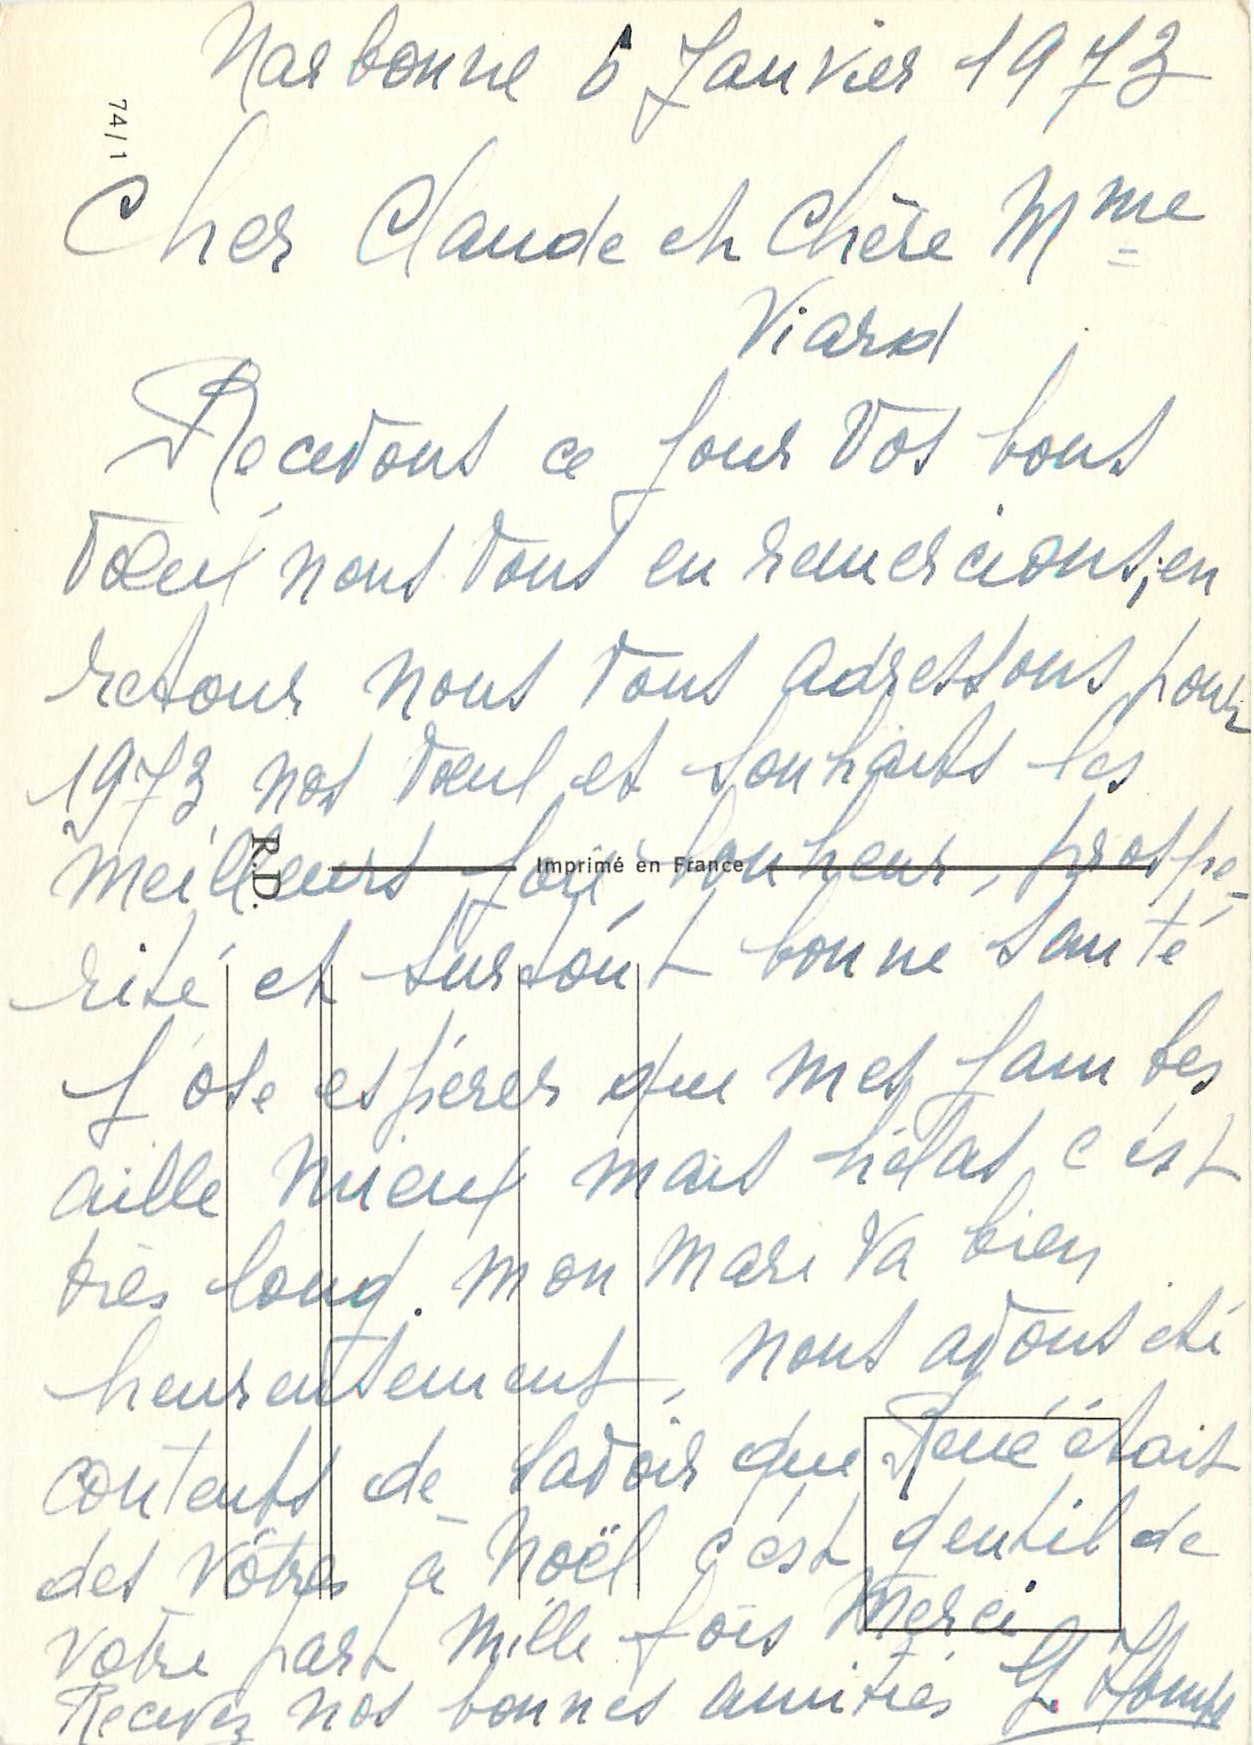 Narbonne 6 Janvier 1973
74/1
Cher Claude et Chère Mme
Viard
Recevons ce jour vos bons
vœux nous vous en remercions, en
retour nous vous adressons pour
1973 nos vœux et souhaits les
meilleurs joie bonheur, prospé-
R.D.
Imprimé en France
rité et surtout bonne santé
J'ose espérer que mes jambes
aille mieux mais hélas c'est
très long. mon mari va bien
heureusement, nous avons été
contents de savoir que René était
des vôtres à Noël c'est gentil de
votre part mille fois merci
Recevez nos bonnes amitiés